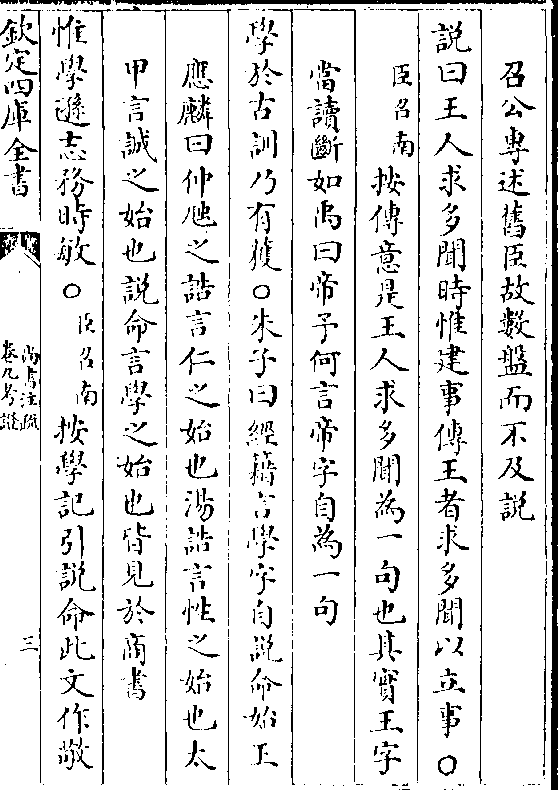 召公專述舊臣故數盤而不及説
説曰王人求多聞時惟建事傳王者求多聞以立事○
臣召南按傳意是王人求多聞為一句也其實王字
當讀斷如禹曰帝予何言帝字自為一句
學於古訓乃有獲○朱子曰經籍言學字自説命始王
應麟曰仲虺之誥言仁之始也湯誥言性之始也太
甲言誠之始也説命言學之始也皆見於商書
惟學遜志務時敏○臣召南按學記引説命此文作敬
欽定四庫全書
尚書注疏
卷九考證
三